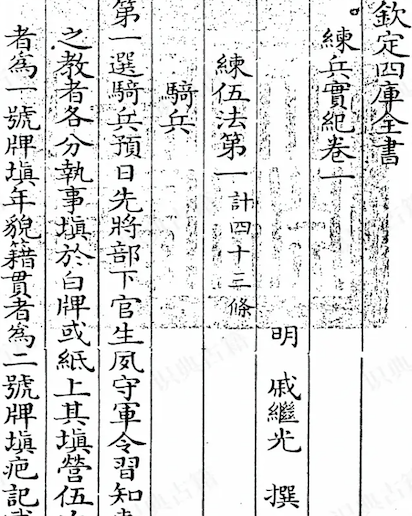 欽定四庫全書
練兵實紀卷一
明 戚繼光 撰
練伍法第一 計四十三條
騎兵
第一選騎兵預日先將部下官生夙守軍令習知
之教者各分執事塡於白牌或紙上其塡營伍
者為一號牌塡年貌籍貫者為二號牌塡疤記